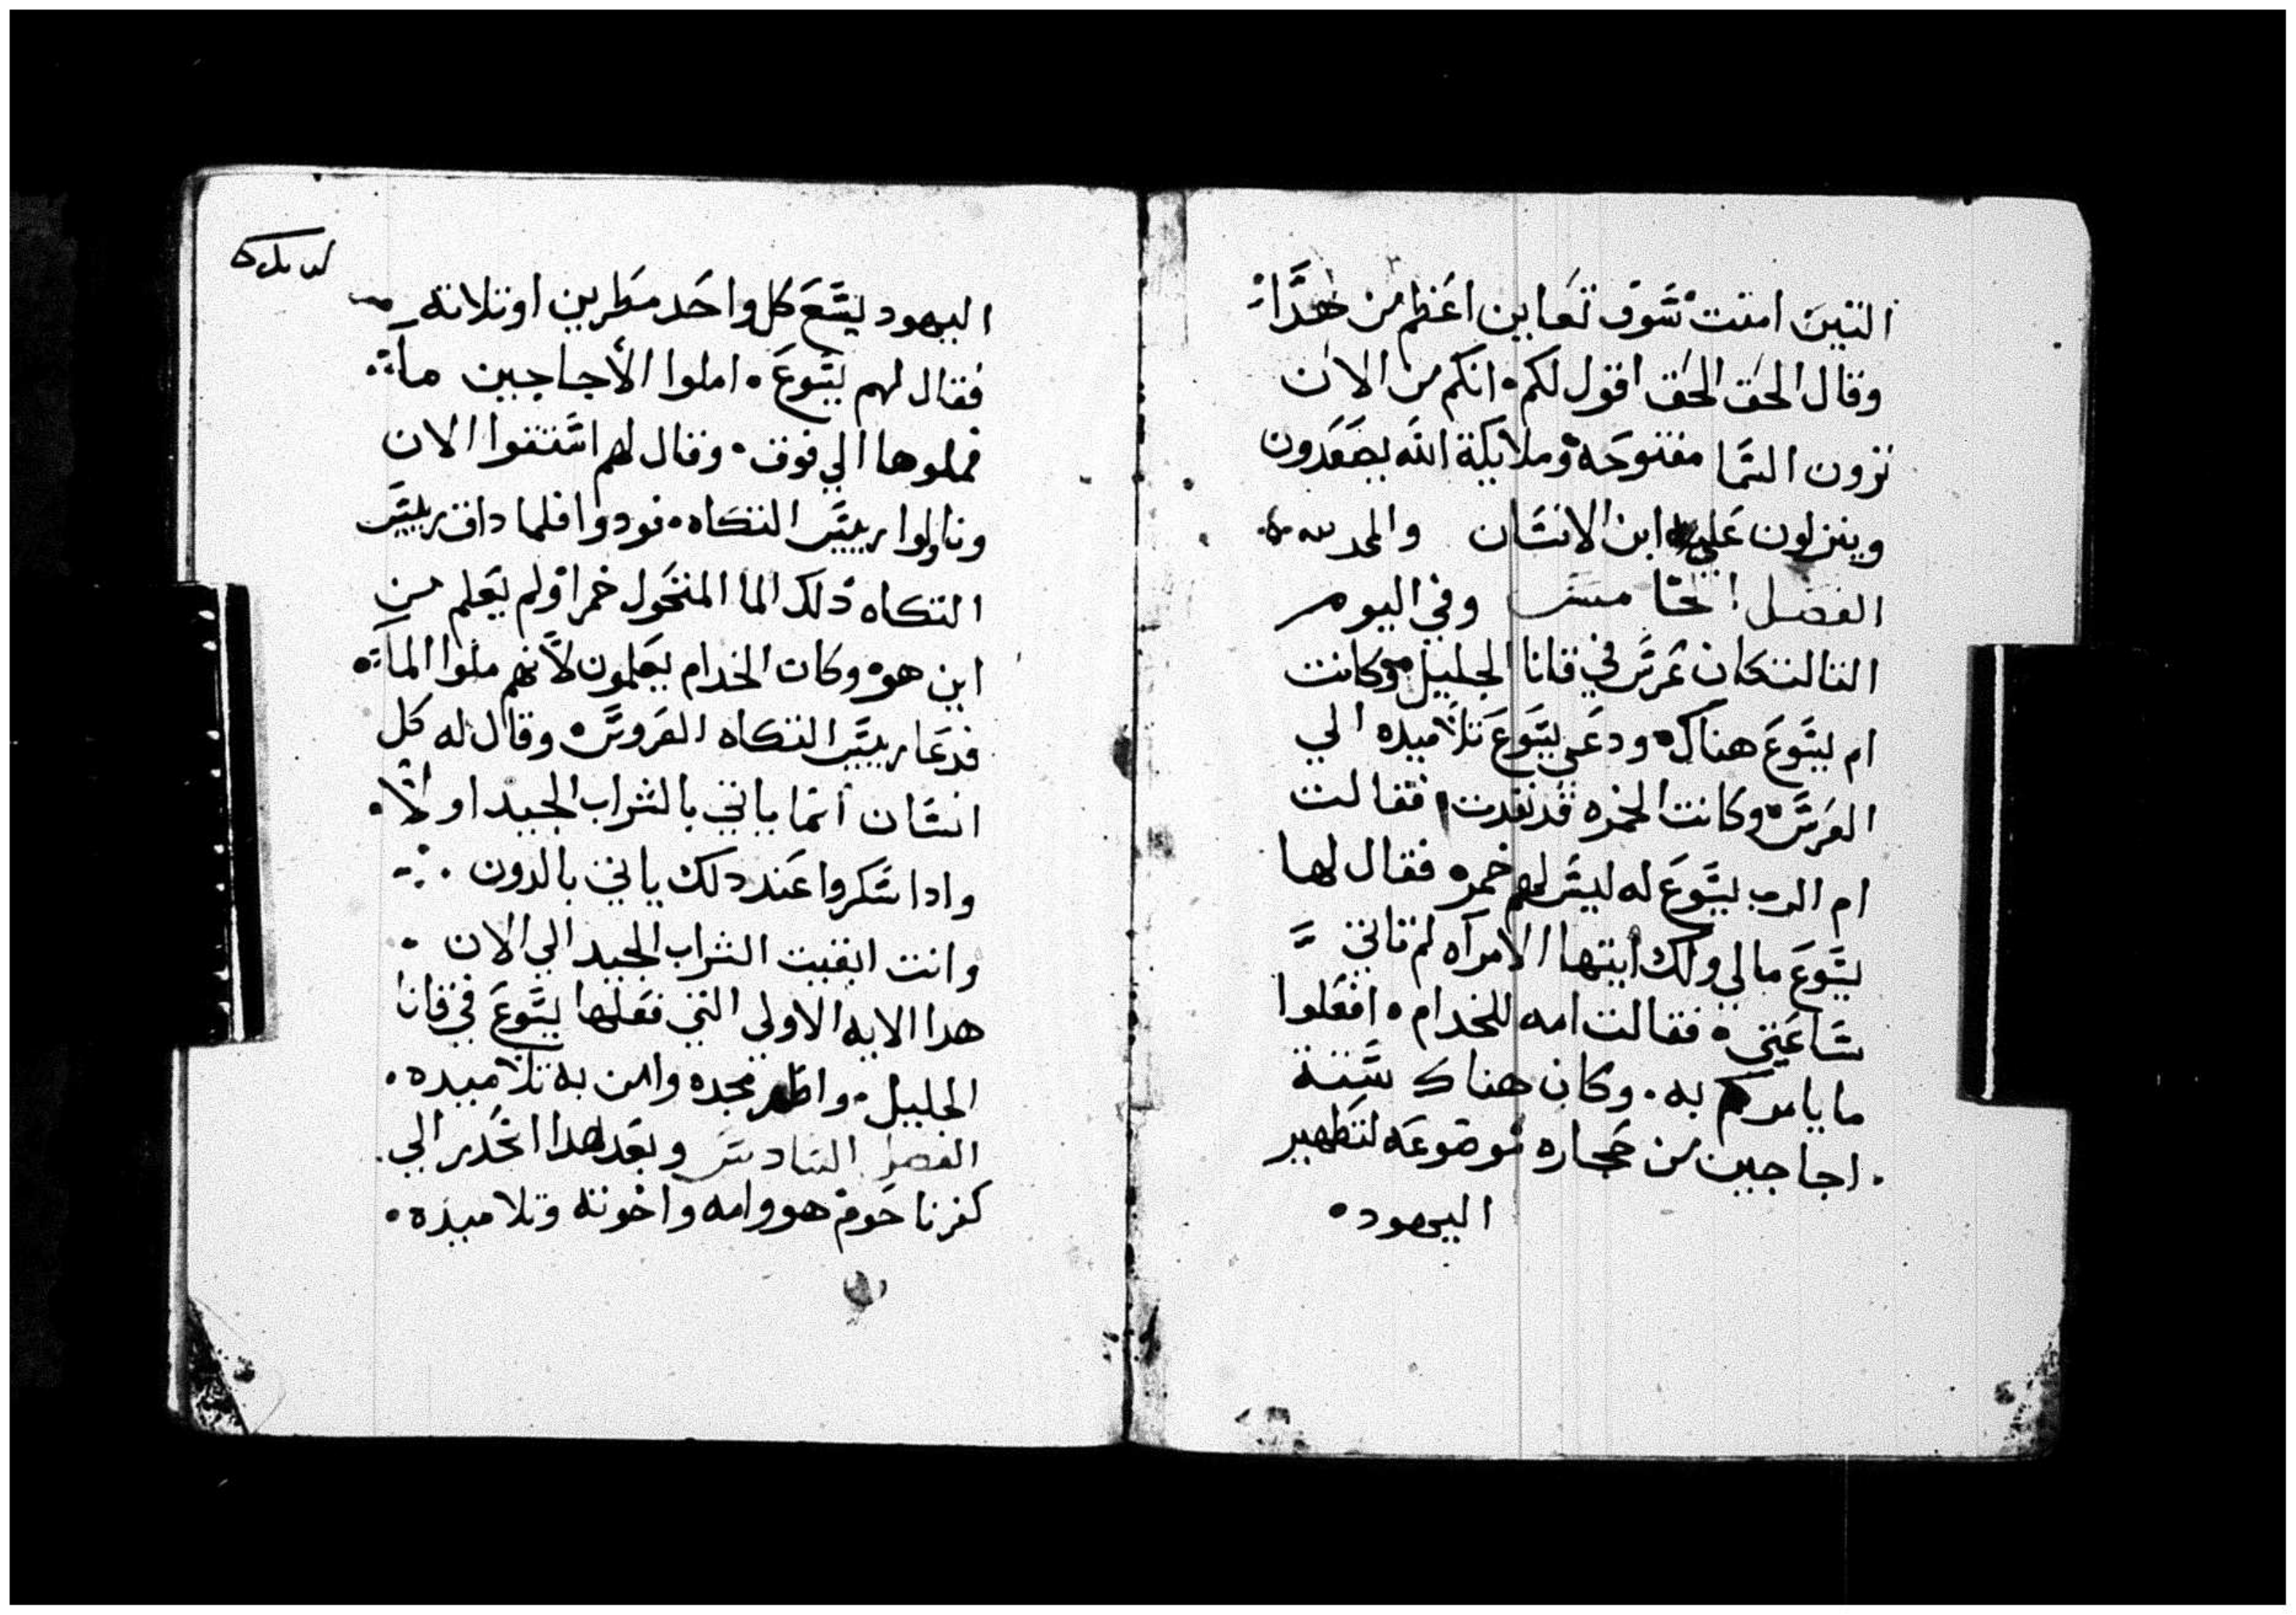 التين امنت سوف تعاين اعظم من هدا
وقال الحق الحق اقول لكم انكم من الان
ترون السما مفتوحة وملايكة الله يصعدون
وينزلون علي ابن الانسان والمجد لله
الفصل الخامس وفي اليوم
التالت كان عرس في قانا الجليل وكانت
ام يسوع هناك ودعي يسوع وتلاميده الي
العرس وكانت الخمره قد نفدت فقالت
ام الرب يسوع له ليس لهم خمره فقال لها
يسوع مالي ولك ايتها الامراه لم تاتي
ساعتي فقالت امه للخدام افعلوا
ما يامركم به وكان هناك ستة
اجاجين من حجاره موضوعه لتطهير
اليهود
اليهود ليسع كل واحد مطرين او تلاته
فقال لهم يسوع املوا الأجاجين ماء
فملوها الي فوق وقال لهم استقوا الان
وناولوا رييس التكاه فودوا فلما داق رييس
التكاه دلك الما المتحول خمرا ولم يعلم من
اين هو وكان الخدام يعلمون لأنهم ملوا الماء
فدعا رييس التكاه العروس وقال له كل
انسان انما ياتي بالشراب الجيد اولا
وادا سكروا عند دلك ياتي بالدون
وانت ابقيت الشراب الجيد الي الان
هدا الايه الاولي التي فعلها يسوع في قانا
الجليل واظهر مجده وامن به تلاميده
الفصل السادس وبعد هدا انحدر الي
كفرناحوم هو وامه واخوته وتلاميذه